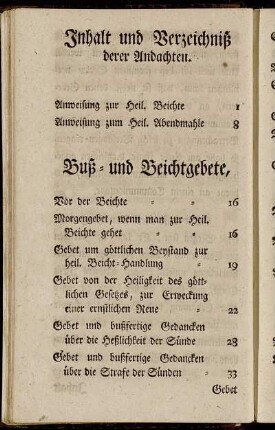 Inhalt und Verzeichniß
derer Andachten.
Anweisung zur Heil. Beichte 1
Anweisung zum Heil. Abendmahle 8
Buß- und Beichtgebete,
Vor der Beichte - - 16
Morgengebet, wenn man zur Heil.
Beichte gehet - - 16
Gebet um göttlichen Beystand zur
heil. Beicht-Handlung - 19
Gebet von der Heiligkeit des gött-
lichen Gesetzes, zur Erweckung
einer ernstlichen Reue - 22
Gebet und bußfertige Gedancken
über die Heßlichkeit der Sünde 28
Gebet und bußfertige Gedancken
über die Strafe der Sünden - 33
Gebet